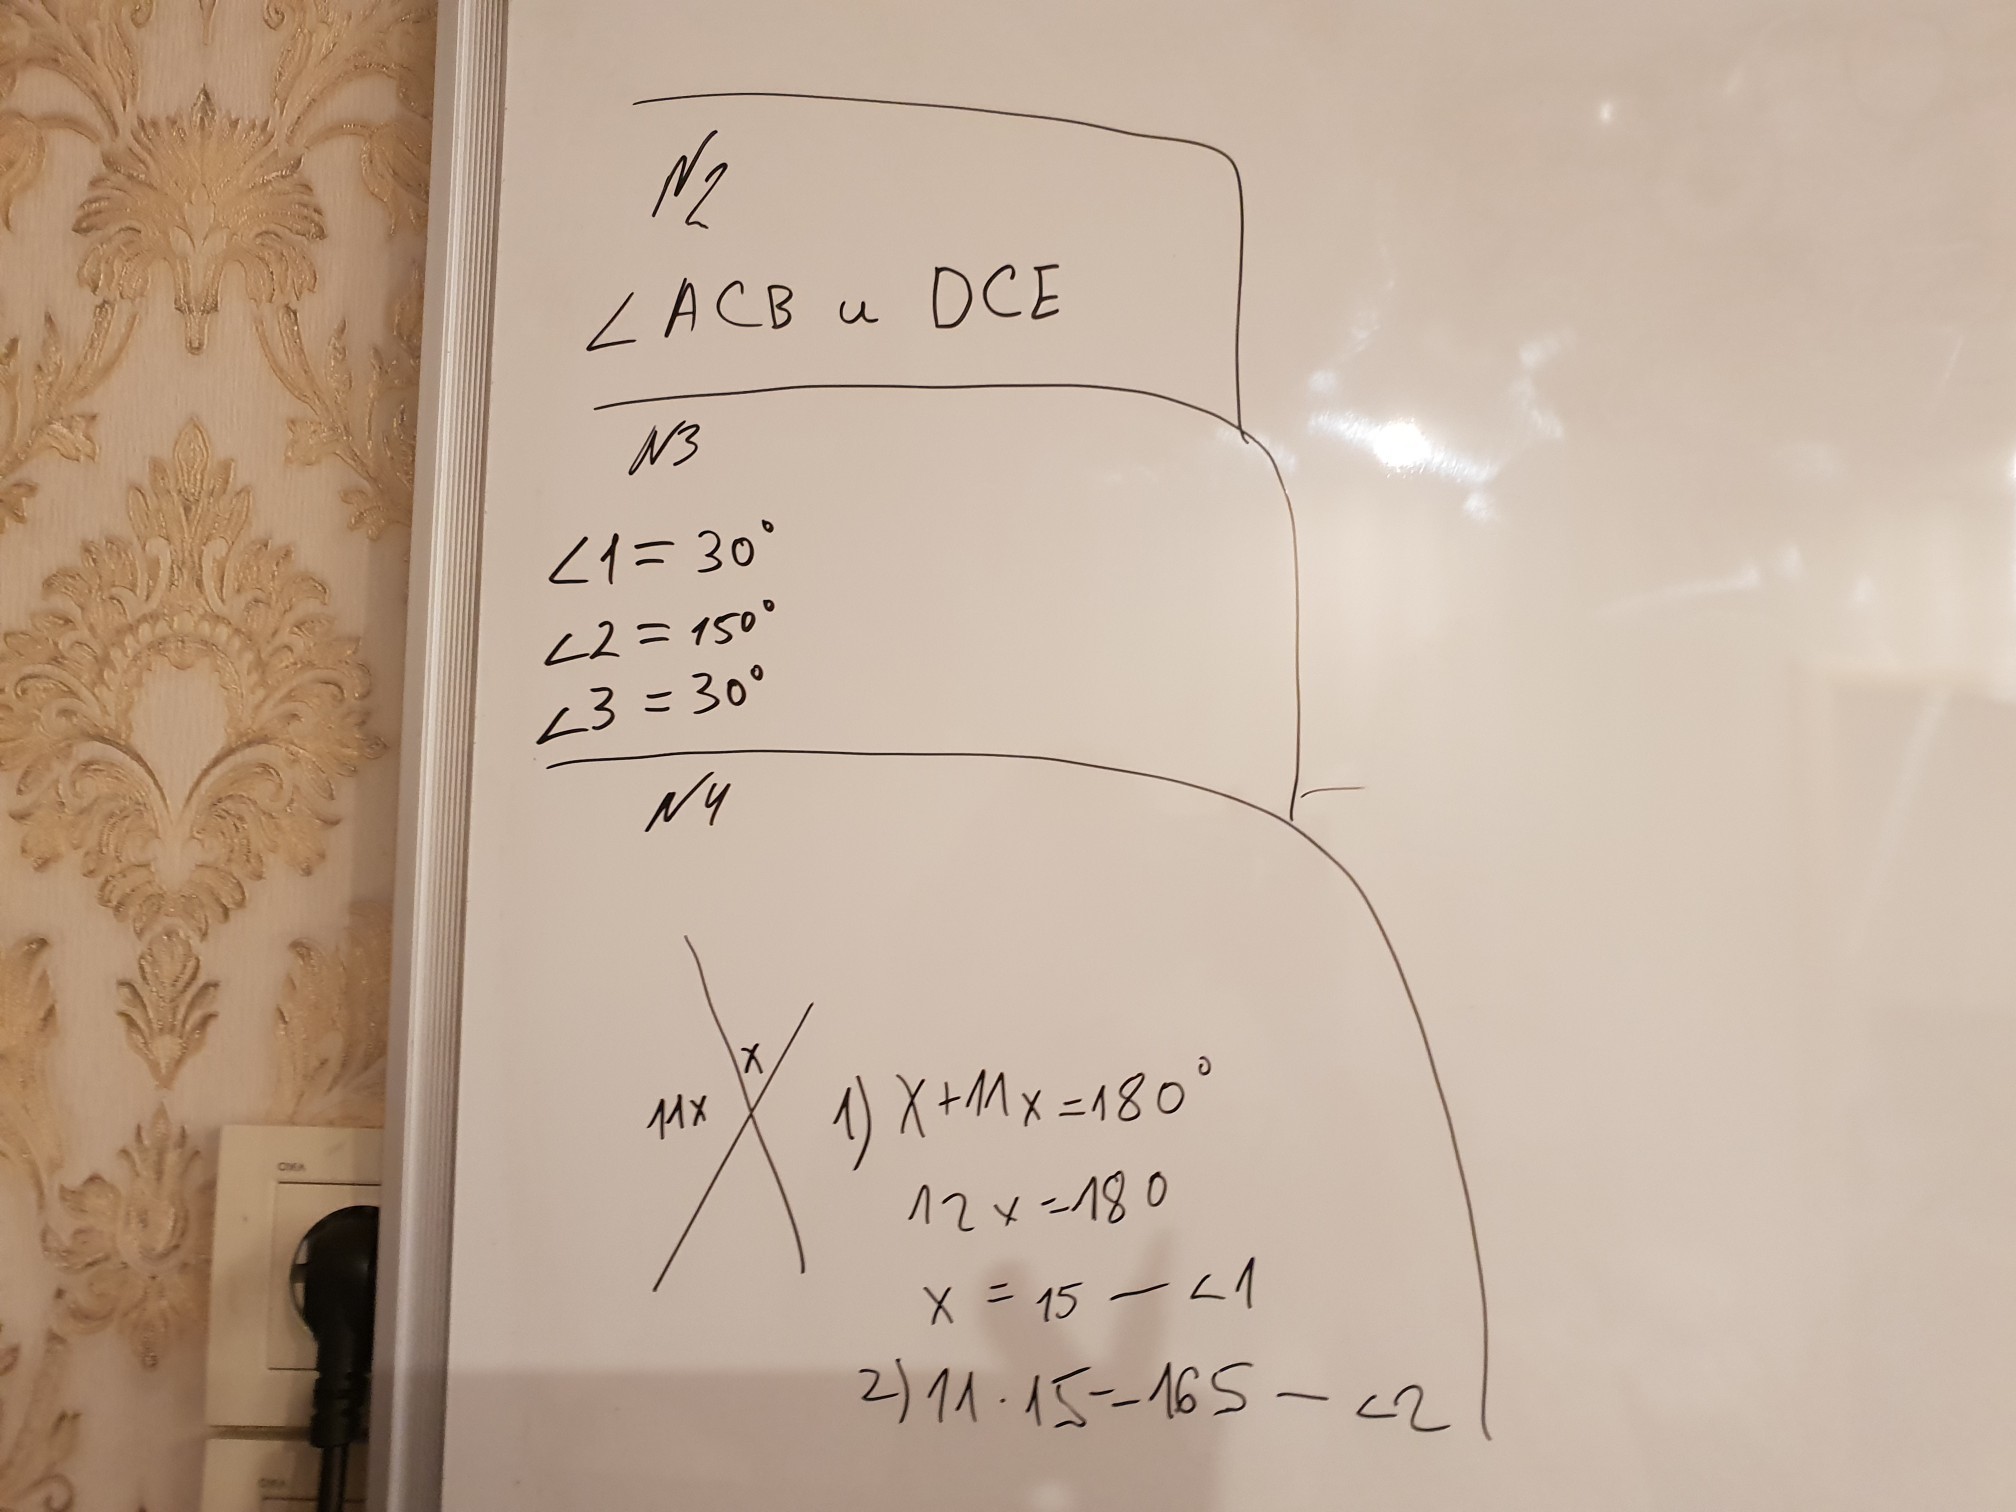 N2
∠ACB и DCE
N3
∠1 = 30°
∠2 = 150°
∠3 = 30°
N4
x
11x
1) x+11x=180°
12x=180
x = 15 — ∠1
2) 11·15=165 — ∠2